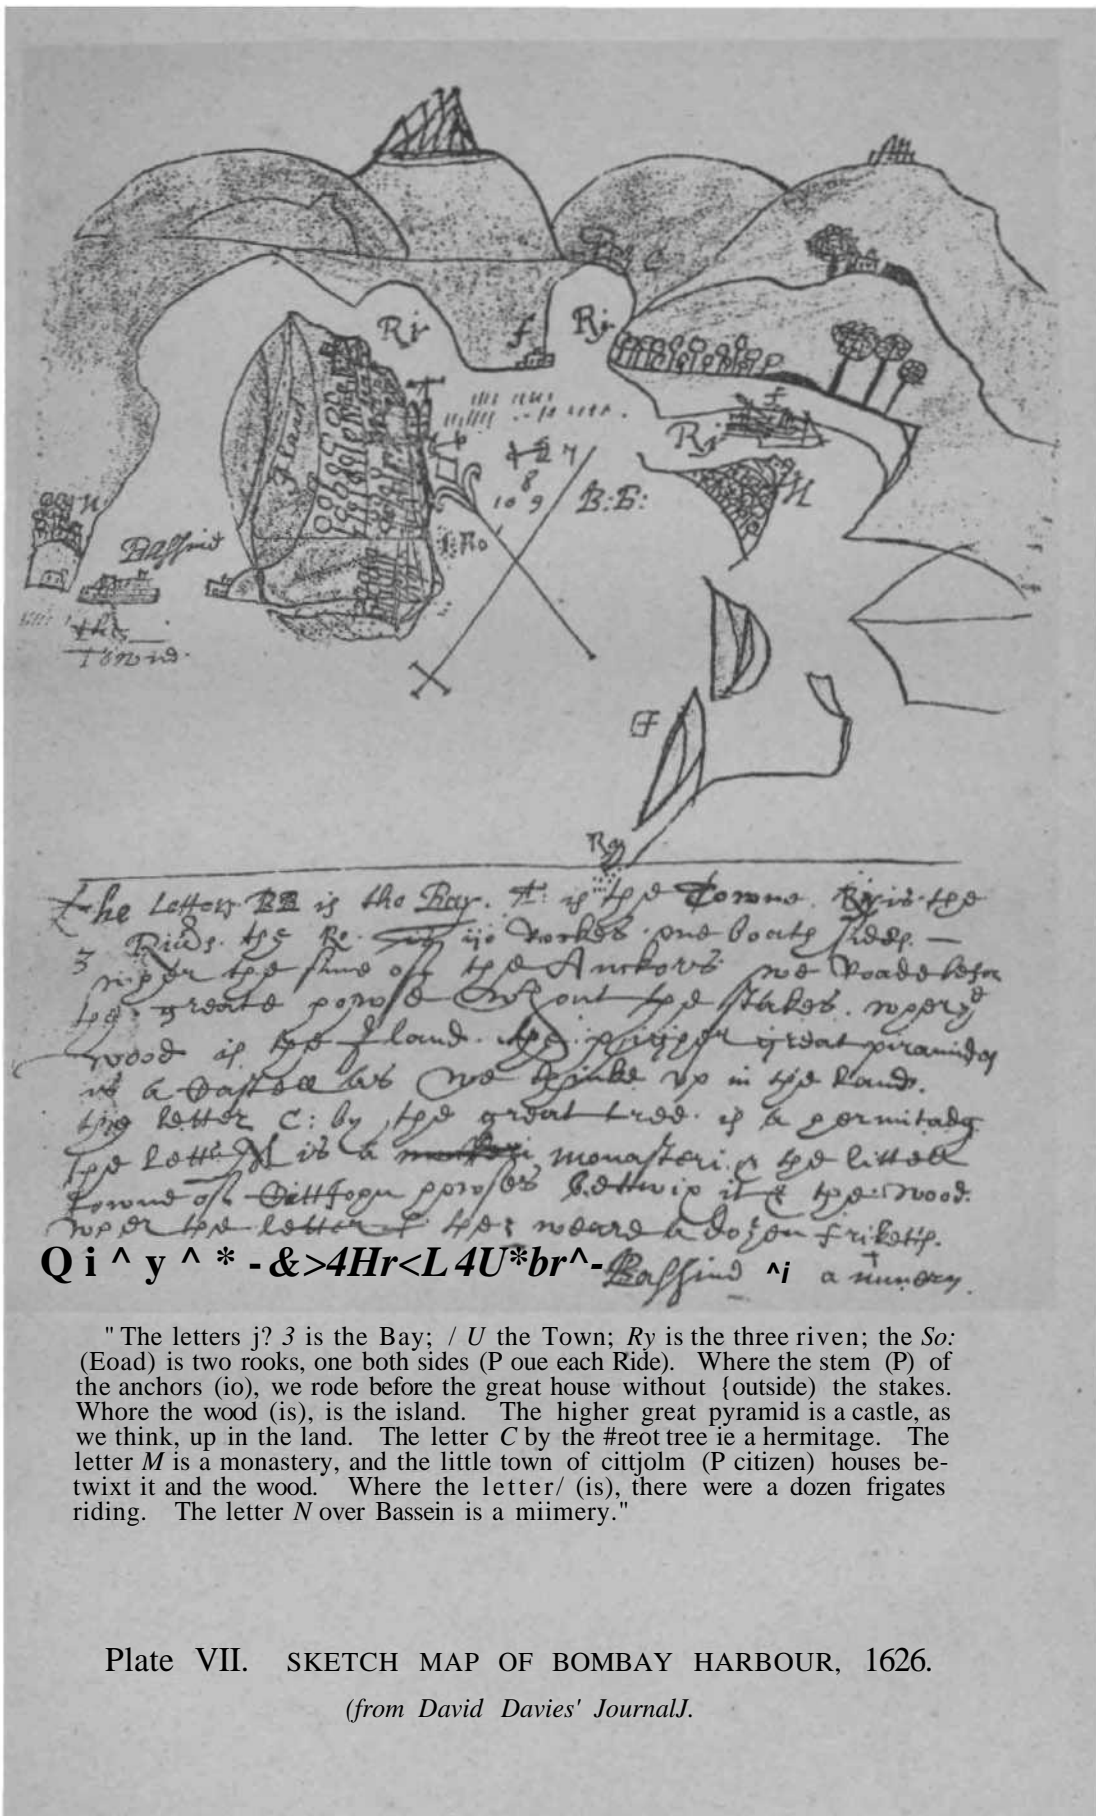 C
Ri
f
Ri
Iland
f
Ri
7
8
M
10 9
B:B:
N
Bassind
Ro
the
Towne
The Letters BB is the Bay. T: is the Towne. Ry is the
3 Rivers. the Ro. is ijo Rockes one boath sides. —
wher the stme off the Anckors we Roade befor
the greate howse without the stakes. wher ye
wood is the Iland. the higher great piramides
is a Castell as we thinke up in the Land.
the letter C: by the great tree is a hermitadg
the Letter M is a monasteri & the littell
towne off howses bettwix it & the wood.
wher the letter f the: weare a dozen friketts.
Q i ^ y ^ * - &>4Hr<L 4U*br^- Bassind ^i a nunery.
" The letters j? 3 is the Bay; / U the Town; Ry is the three riven; the So:
(Eoad) is two rooks, one both sides (P oue each Ride). Where the stem (P) of
the anchors (io), we rode before the great house without {outside) the stakes.
Whore the wood (is), is the island. The higher great pyramid is a castle, as
we think, up in the land. The letter C by the #reot tree ie a hermitage. The
letter M is a monastery, and the little town of cittjolm (P citizen) houses be-
twixt it and the wood. Where the letter/ (is), there were a dozen frigates
riding. The letter N over Bassein is a miimery."
Plate VII. SKETCH MAP OF BOMBAY HARBOUR, 1626.
(from David Davies' JournalJ.